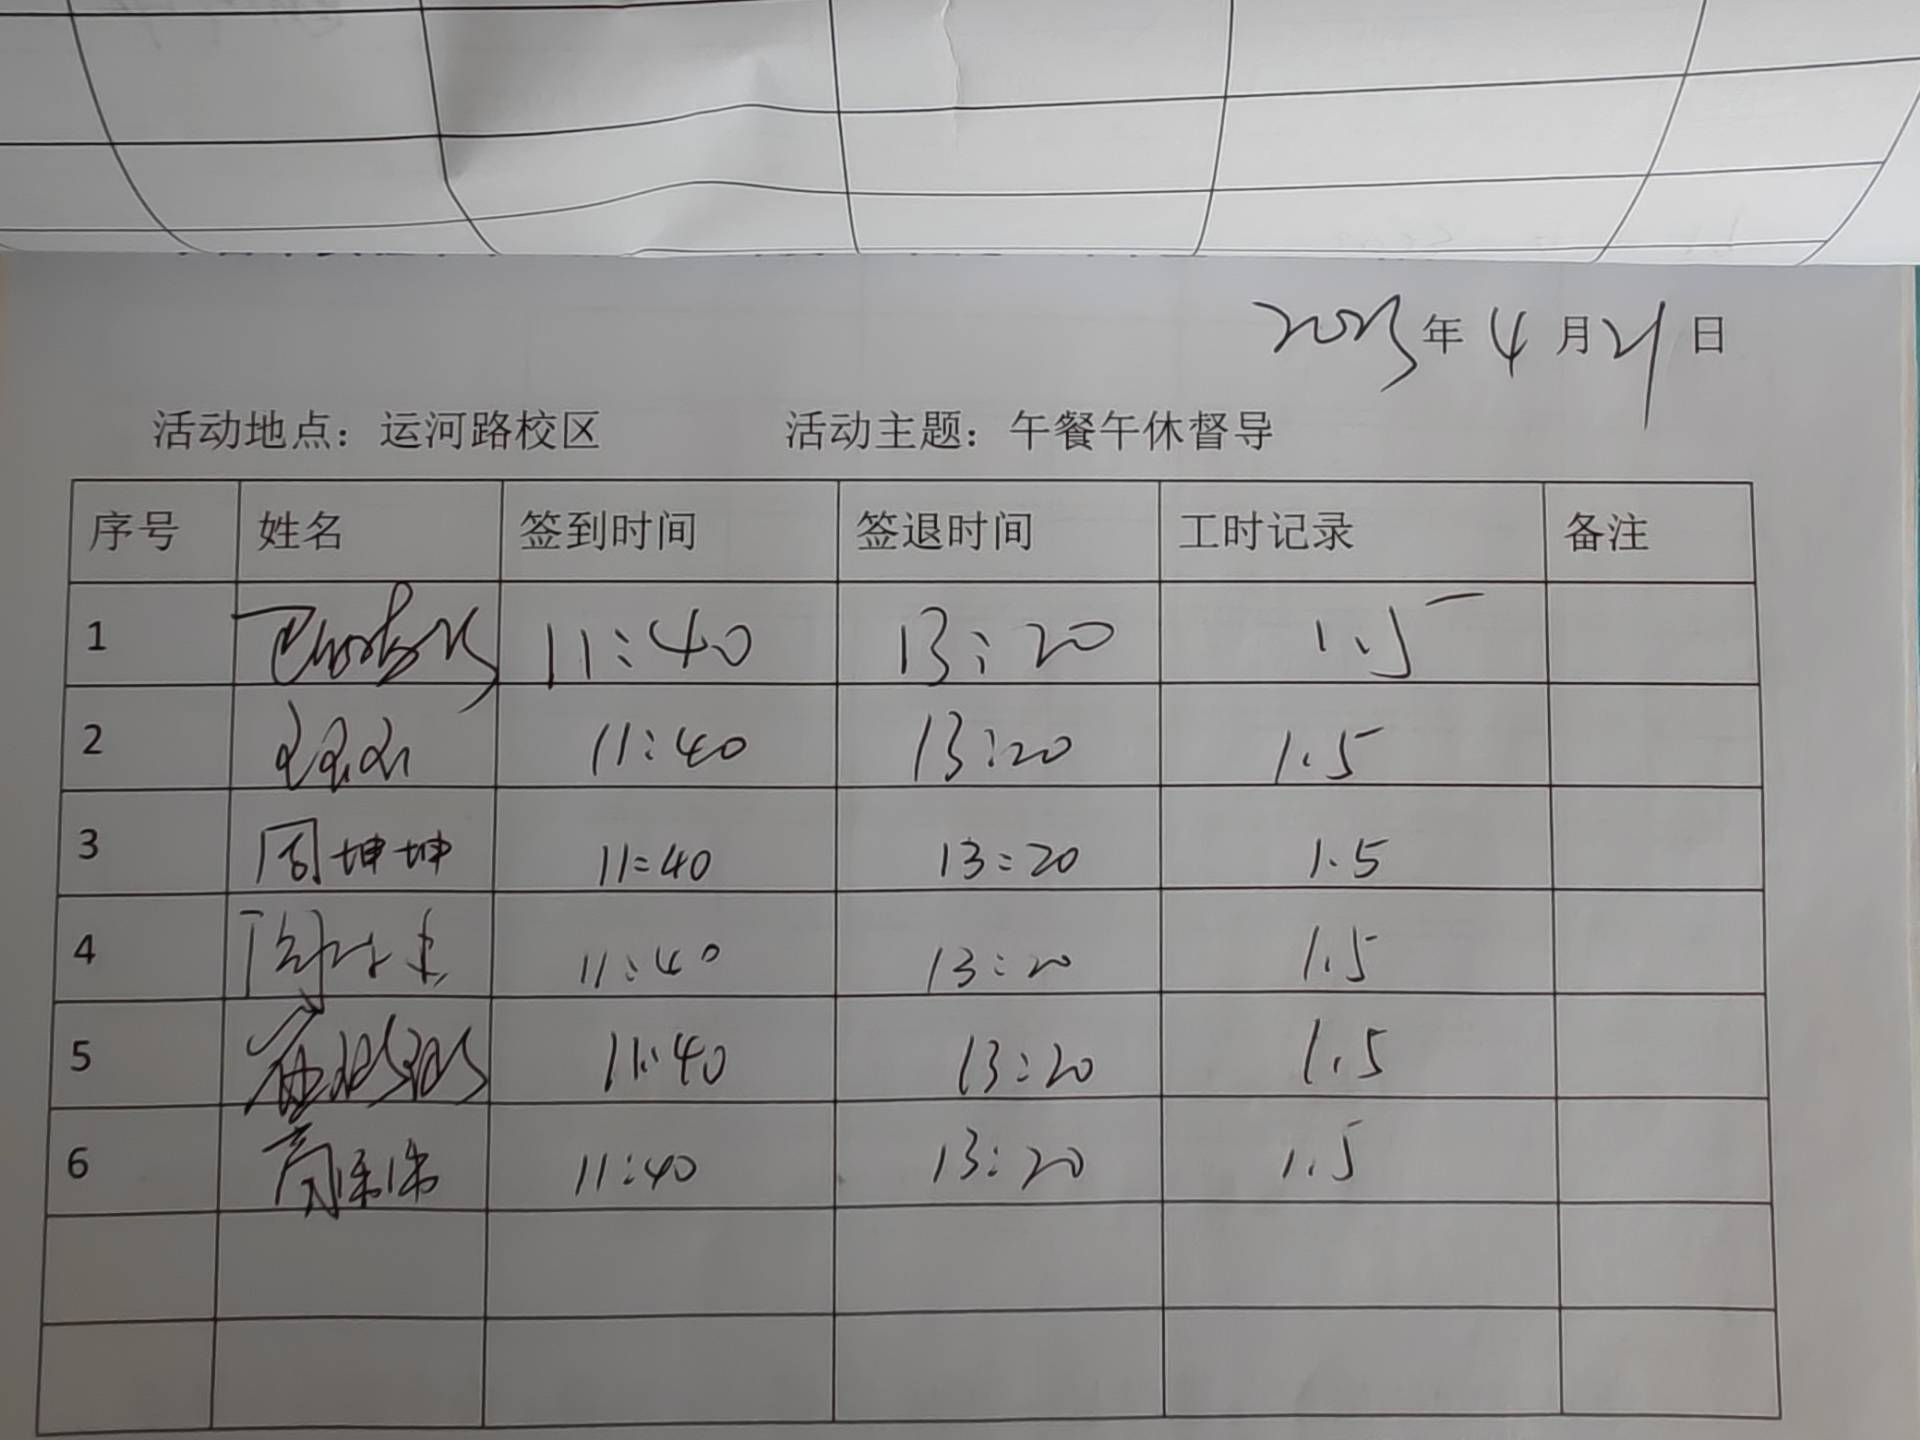 2023年4月21日
活动地点：运河路校区 活动主题：午餐午休督导
序号 姓名 签到时间 签退时间 工时记录 备注
1 11:40 13:20 1.5
2 11:40 13:20 1.5
3 周坤坤 11:40 13:20 1.5
4 11:40 13:20 1.5
5 11:40 13:20 1.5
6 11:40 13:20 1.5